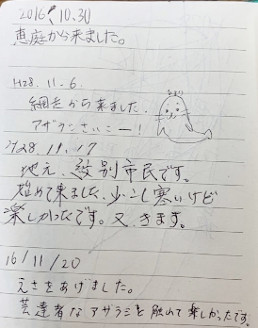 2016.10.30
恵庭から来ました。
H28.11.6
網走から来ました。
アザラシさいこー!
H28.11.17
地元、紋別市民です。
始めて来ました、少こし寒いけど
楽しかったです。又、きます。
16/11/20
えさをあげました。
芸達者なアザラシを触れて楽しかったです。